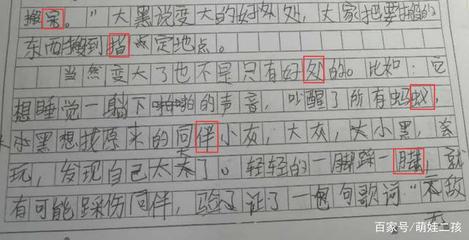 搬完。”大黑说变大的好处处,大家把要搬的
东西搬到指点定地点。
当然变大了也不是只有好处的。比如:它
想睡觉一躺下啪啪的声音,吵醒了所有蚂蚁,
大黑想找原来的同伴小友,大友,大小黑,
玩,发现自己太大了。轻轻的一脚踩一踩,就
有可能踩伤同伴,验了证了一包句歌词“不敌
百家号/萌娃二孩